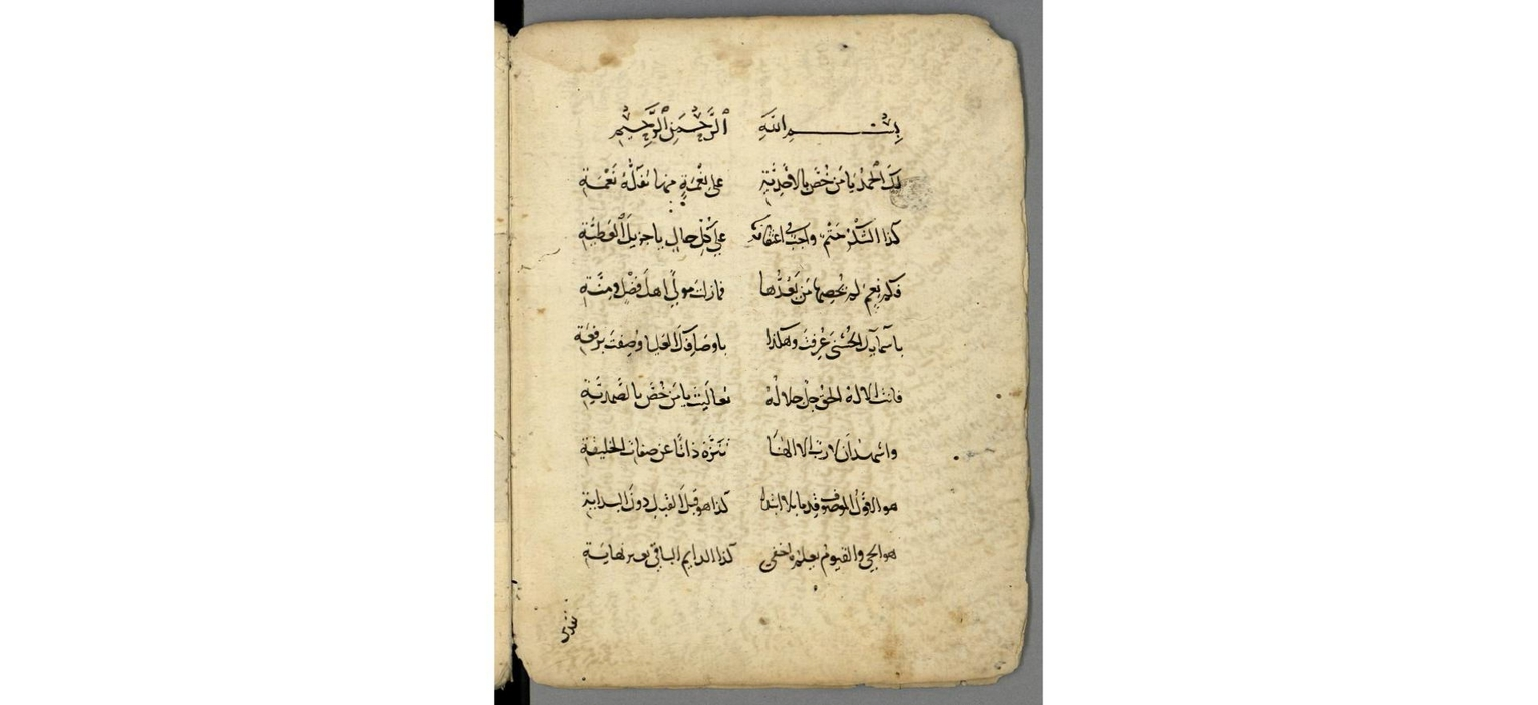 بِسْمِ اللَّهِ الرَّحْمَنِ الرَّحِيمِ
لك الحمدُ يا من خُصَّ بالاحديّةِ على نعْمَةٍ منها نعمة
كذا الشكر حتم واجب في اعتقاده على كل حالٍ يا جزيل العطيّةِ
فكم نعم لم يحصها من يَعُدُّها فما زلت مولى اهل فضل ومنّةِ
باسمايك الحسنى عُرفت وهكذا باوصافك العليا وصفت برفعة
فانت الاله الحق جل جلاله تعاليت يا من خُصَّ بالصمديّةِ
واشهد ان لا رب الا الهنا تنزّه ذاتًا عن صفات الخليقة
هو الاوّل الموصوف قدما بلا ابتدا كذا هو قبل القبل دون البداية
هو الحي والقيوم يعلم ما خفي كذا الدايم الباقي بغير نهاية